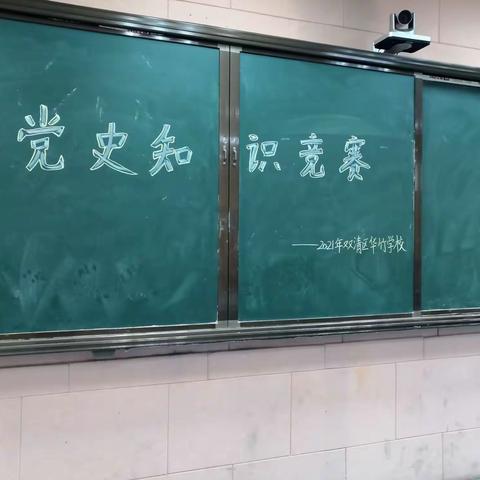 党史知识竞赛
——2021年双清区华竹学校